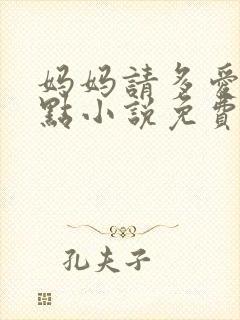 妈妈請多愛
點小説免費
孔夫子